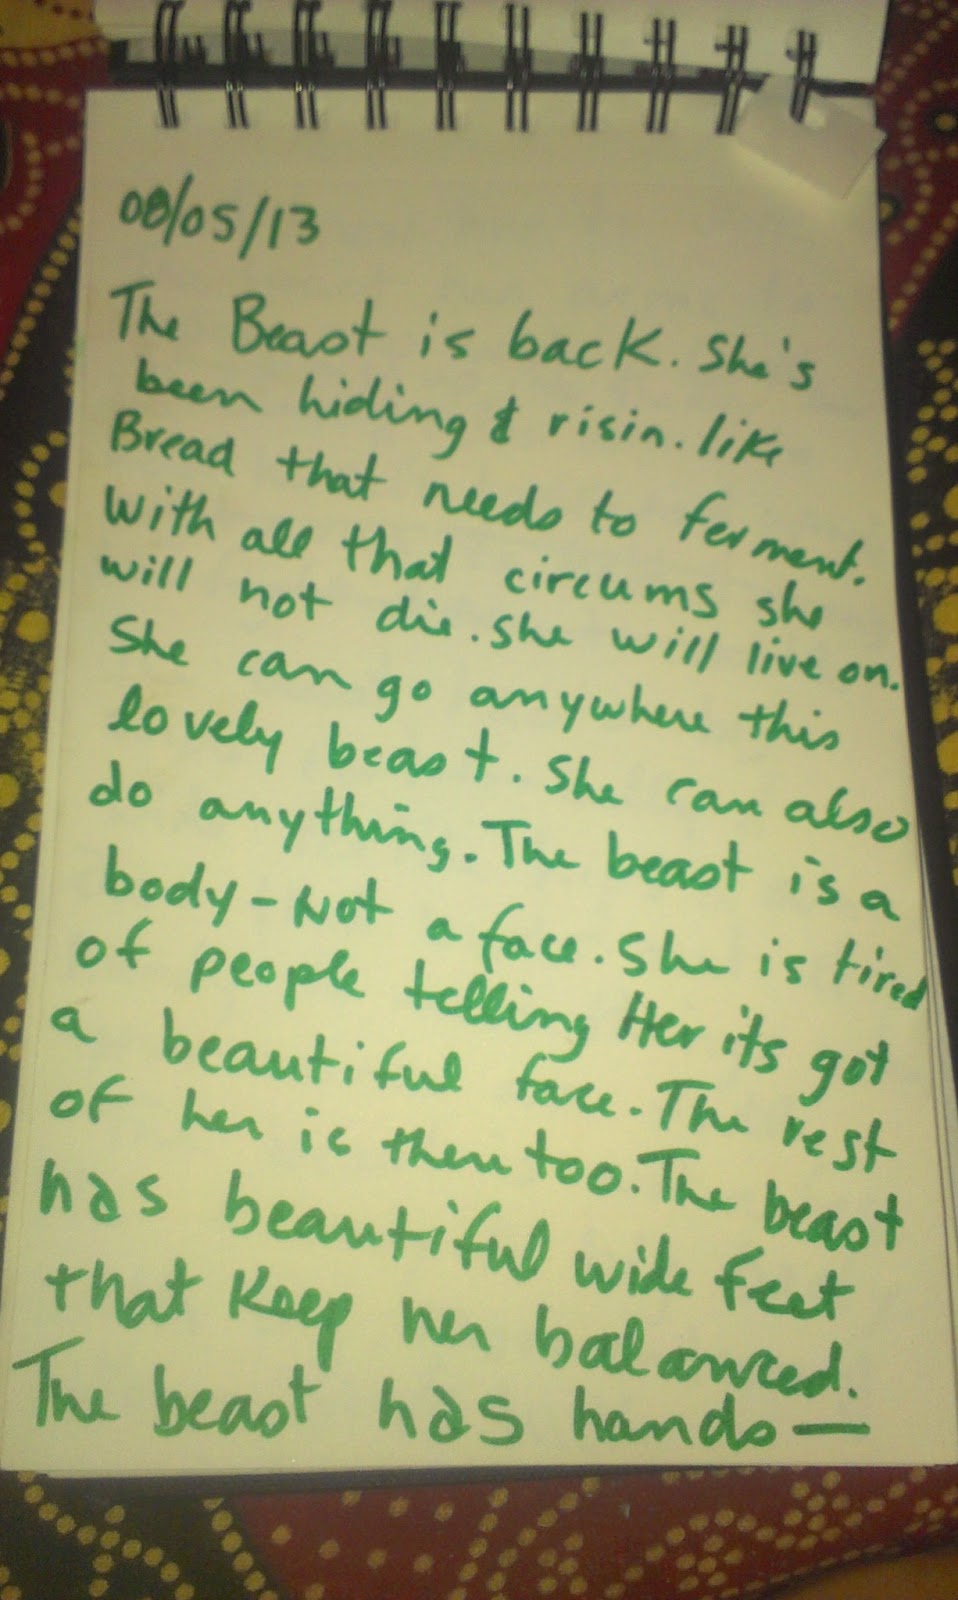 08/05/13
The Beast is back. She's
been hiding & risin. like
Bread that needs to ferment.
With all that circums she
will not die. She will live on.
She can go anywhere this
lovely beast. She can also
do anything. The beast is a
body - Not a face. She is tired
of people telling Her its got
a beautiful face. The rest
of her is there too. The beast
has beautiful wide feet
that Keep her balanced.
The beast has hands —